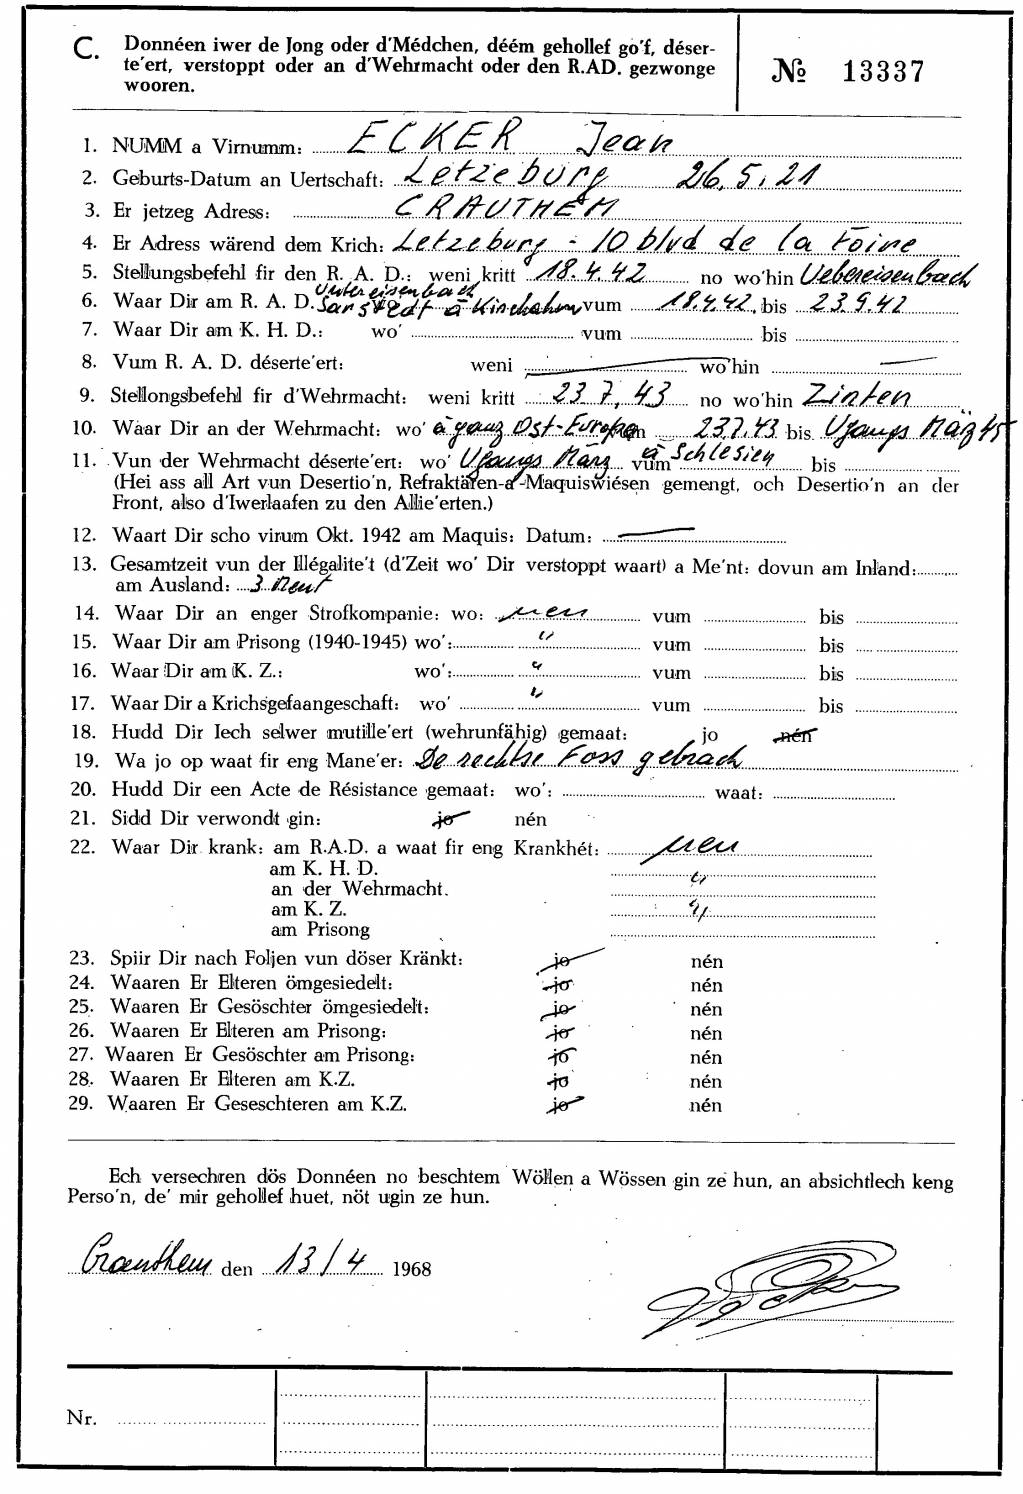 C. Donnéen iwer de Jong oder d'Médchen, déém gehollef go'f, déser-
te'ert, verstoppt oder an d'Wehrmacht oder den R.AD. gezwonge
wooren.
№ 13337
1. NUMM a Virnumm: ECKER Jean
2. Geburts-Datum an Uertschaft: Letzeburg 26.5.21
3. Er jetzeg Adress: CRAUTHEM
4. Er Adress wärend dem Krich: Letzeburg - 10 blvd de la Foire
5. Stellungsbefehl fir den R. A. D.: weni kritt 18.4.42 no wo'hin Uebereisenbach
Untereisenbach
6. Waar Dir am R. A. D. Sarstedt à Kirchohm vum 18.4.42. bis 23.9.42
7. Waar Dir am K. H. D.: wo' vum bis
8. Vum R. A. D. déserte'ert: weni — wo'hin —
9. Stellongsbefehl fir d'Wehrmacht: weni kritt 23.7.43 no wo'hin Zinten
10. Waar Dir an der Wehrmacht: wo' à ganz Ost-Europa 23.7.43 bis Ufangs März 45
11. Vun der Wehrmacht déserte'ert: wo' Ufangs März vum à Schlesien bis
(Hei ass all Art vun Desertio'n, Refraktären-a-Maquiswiésen gemengt, och Desertio'n an der
Front, also d'Iwerlaafen zu den Allie'erten.)
12. Waart Dir scho virum Okt. 1942 am Maquis: Datum: —
13. Gesamtzeit vun der Illégalite't (d'Zeit wo' Dir verstoppt waart) a Me'nt: dovun am Inland:
am Ausland: 3 Ment
14. Waar Dir an enger Strofkompanie: wo: nen vum bis
15. Waar Dir am Prisong (1940-1945) wo': " vum bis
16. Waar Dir am K. Z.: wo': " vum bis
17. Waar Dir a Krichsgefaangeschaft: wo' " vum bis
18. Hudd Dir Iech selwer mutille'ert (wehrunfähig) gemaat: jo nén
19. Wa jo op waat fir eng Mane'er: De rechtse Foss gebrach
20. Hudd Dir een Acte de Résistance gemaat: wo': waat:
21. Sidd Dir verwondt gin: jo nén
22. Waar Dir krank: am R.A.D. a waat fir eng Krankhét: nen
am K. H. D. "
an der Wehrmacht. "
am K. Z.
am Prisong
23. Spiir Dir nach Foljen vun döser Kränkt: jo nén
24. Waaren Er Elteren ömgesiedelt: jo nén
25. Waaren Er Gesöschter ömgesiedelt: jo nén
26. Waaren Er Elteren am Prisong: jo nén
27. Waaren Er Gesöschter am Prisong: jo nén
28. Waaren Er Elteren am K.Z. jo nén
29. Waaren Er Geseschteren am K.Z. jo nén
Ech versechren dös Donnéen no beschtem Wöllen a Wössen gin ze hun, an absichtlech keng
Perso'n, de' mir gehollef huet, nöt ugin ze hun.
Crauthem den 13/4 1968
Nr.